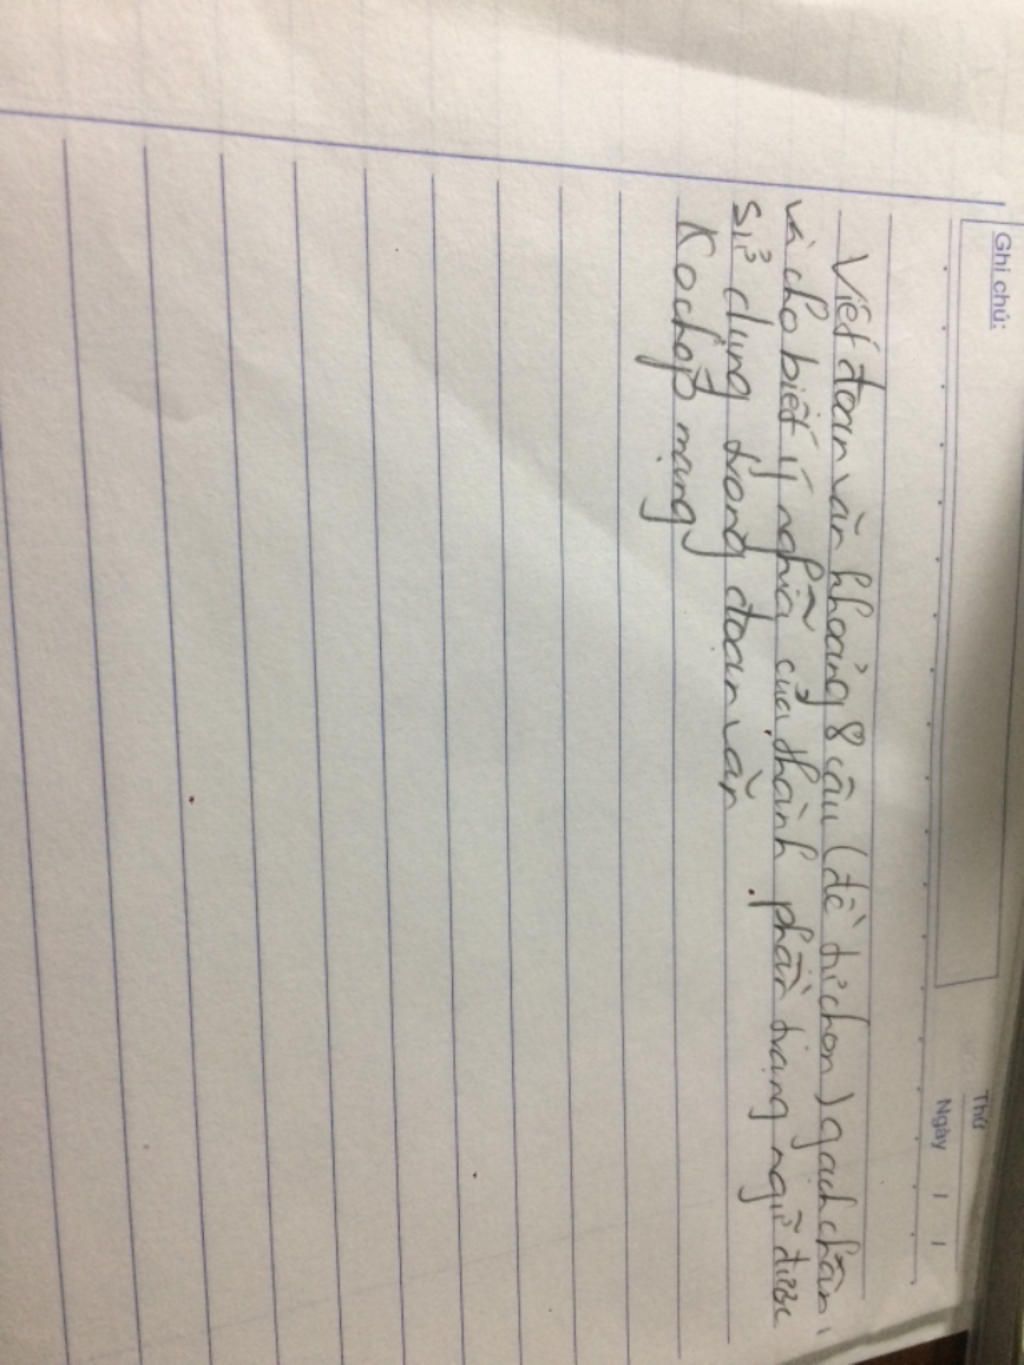 Ghi chú:
Thứ
Ngày / /
Viết đoạn văn khoảng 8 câu (đề tự chọn) gạch chân,
và cho biết ý nghĩa của thành phần trạng ngữ được
sử dụng trong đoạn văn
Ko chép mạng